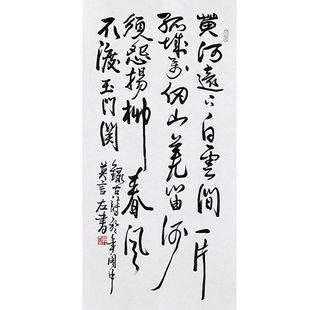 黄河遠上白雲間一片
孤城萬仞山羌笛何
須怨揚柳春風
不渡玉門関
錄古詩於
莫言左書